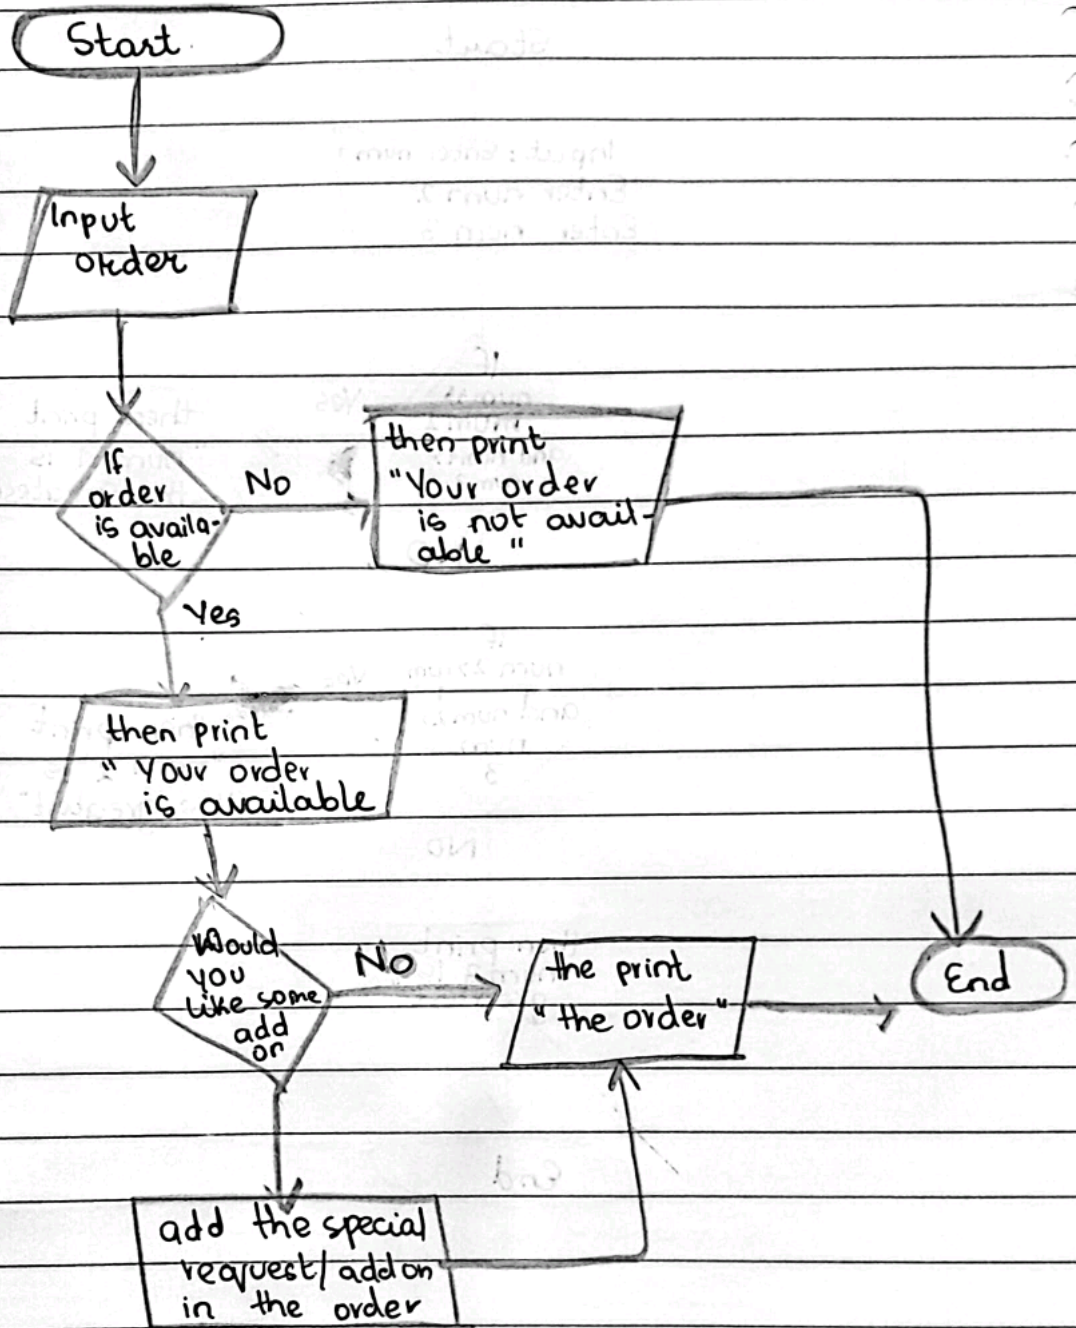 Start
Input
order
If
order
is availa-
ble
No
then print
"Your order
is not avail-
able "
Yes
then print
" Your order
is available
Would
you
Like some
add
on
No
the print
" the order "
End
add the special
request/ add on
in the order